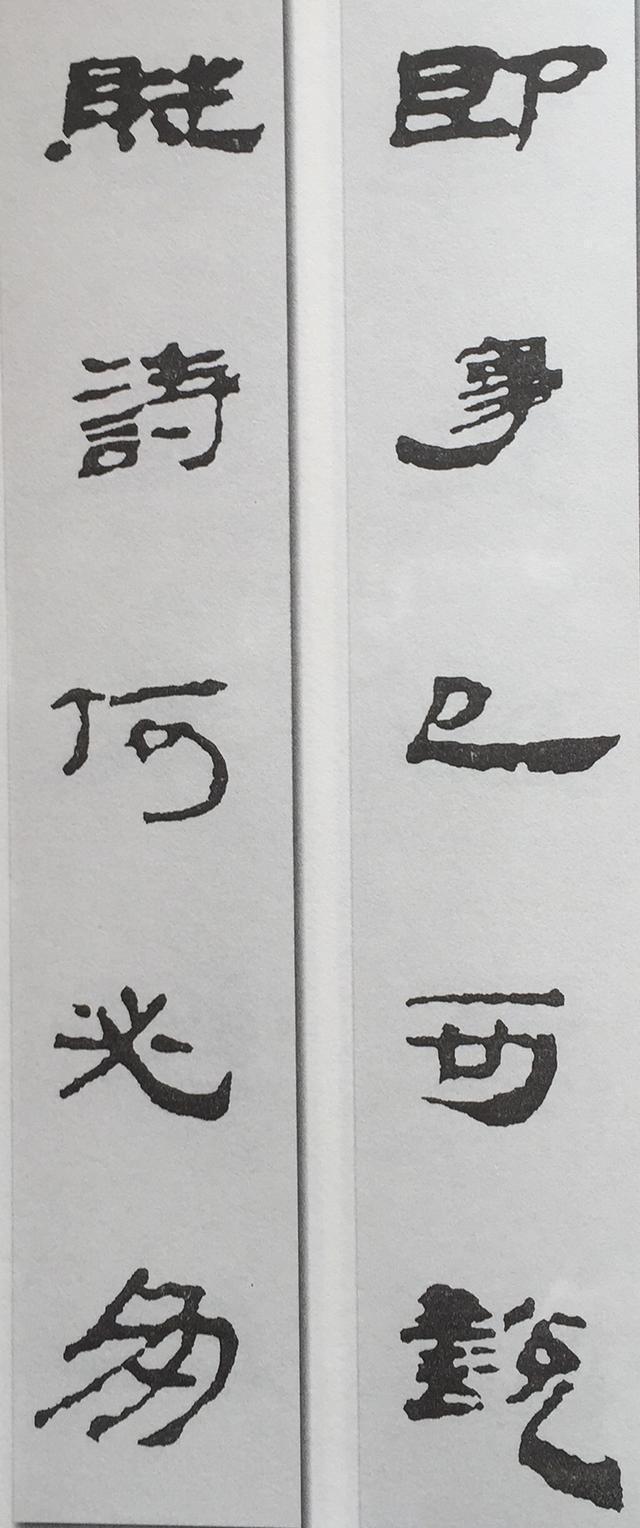 即事已可說
賦詩何必多